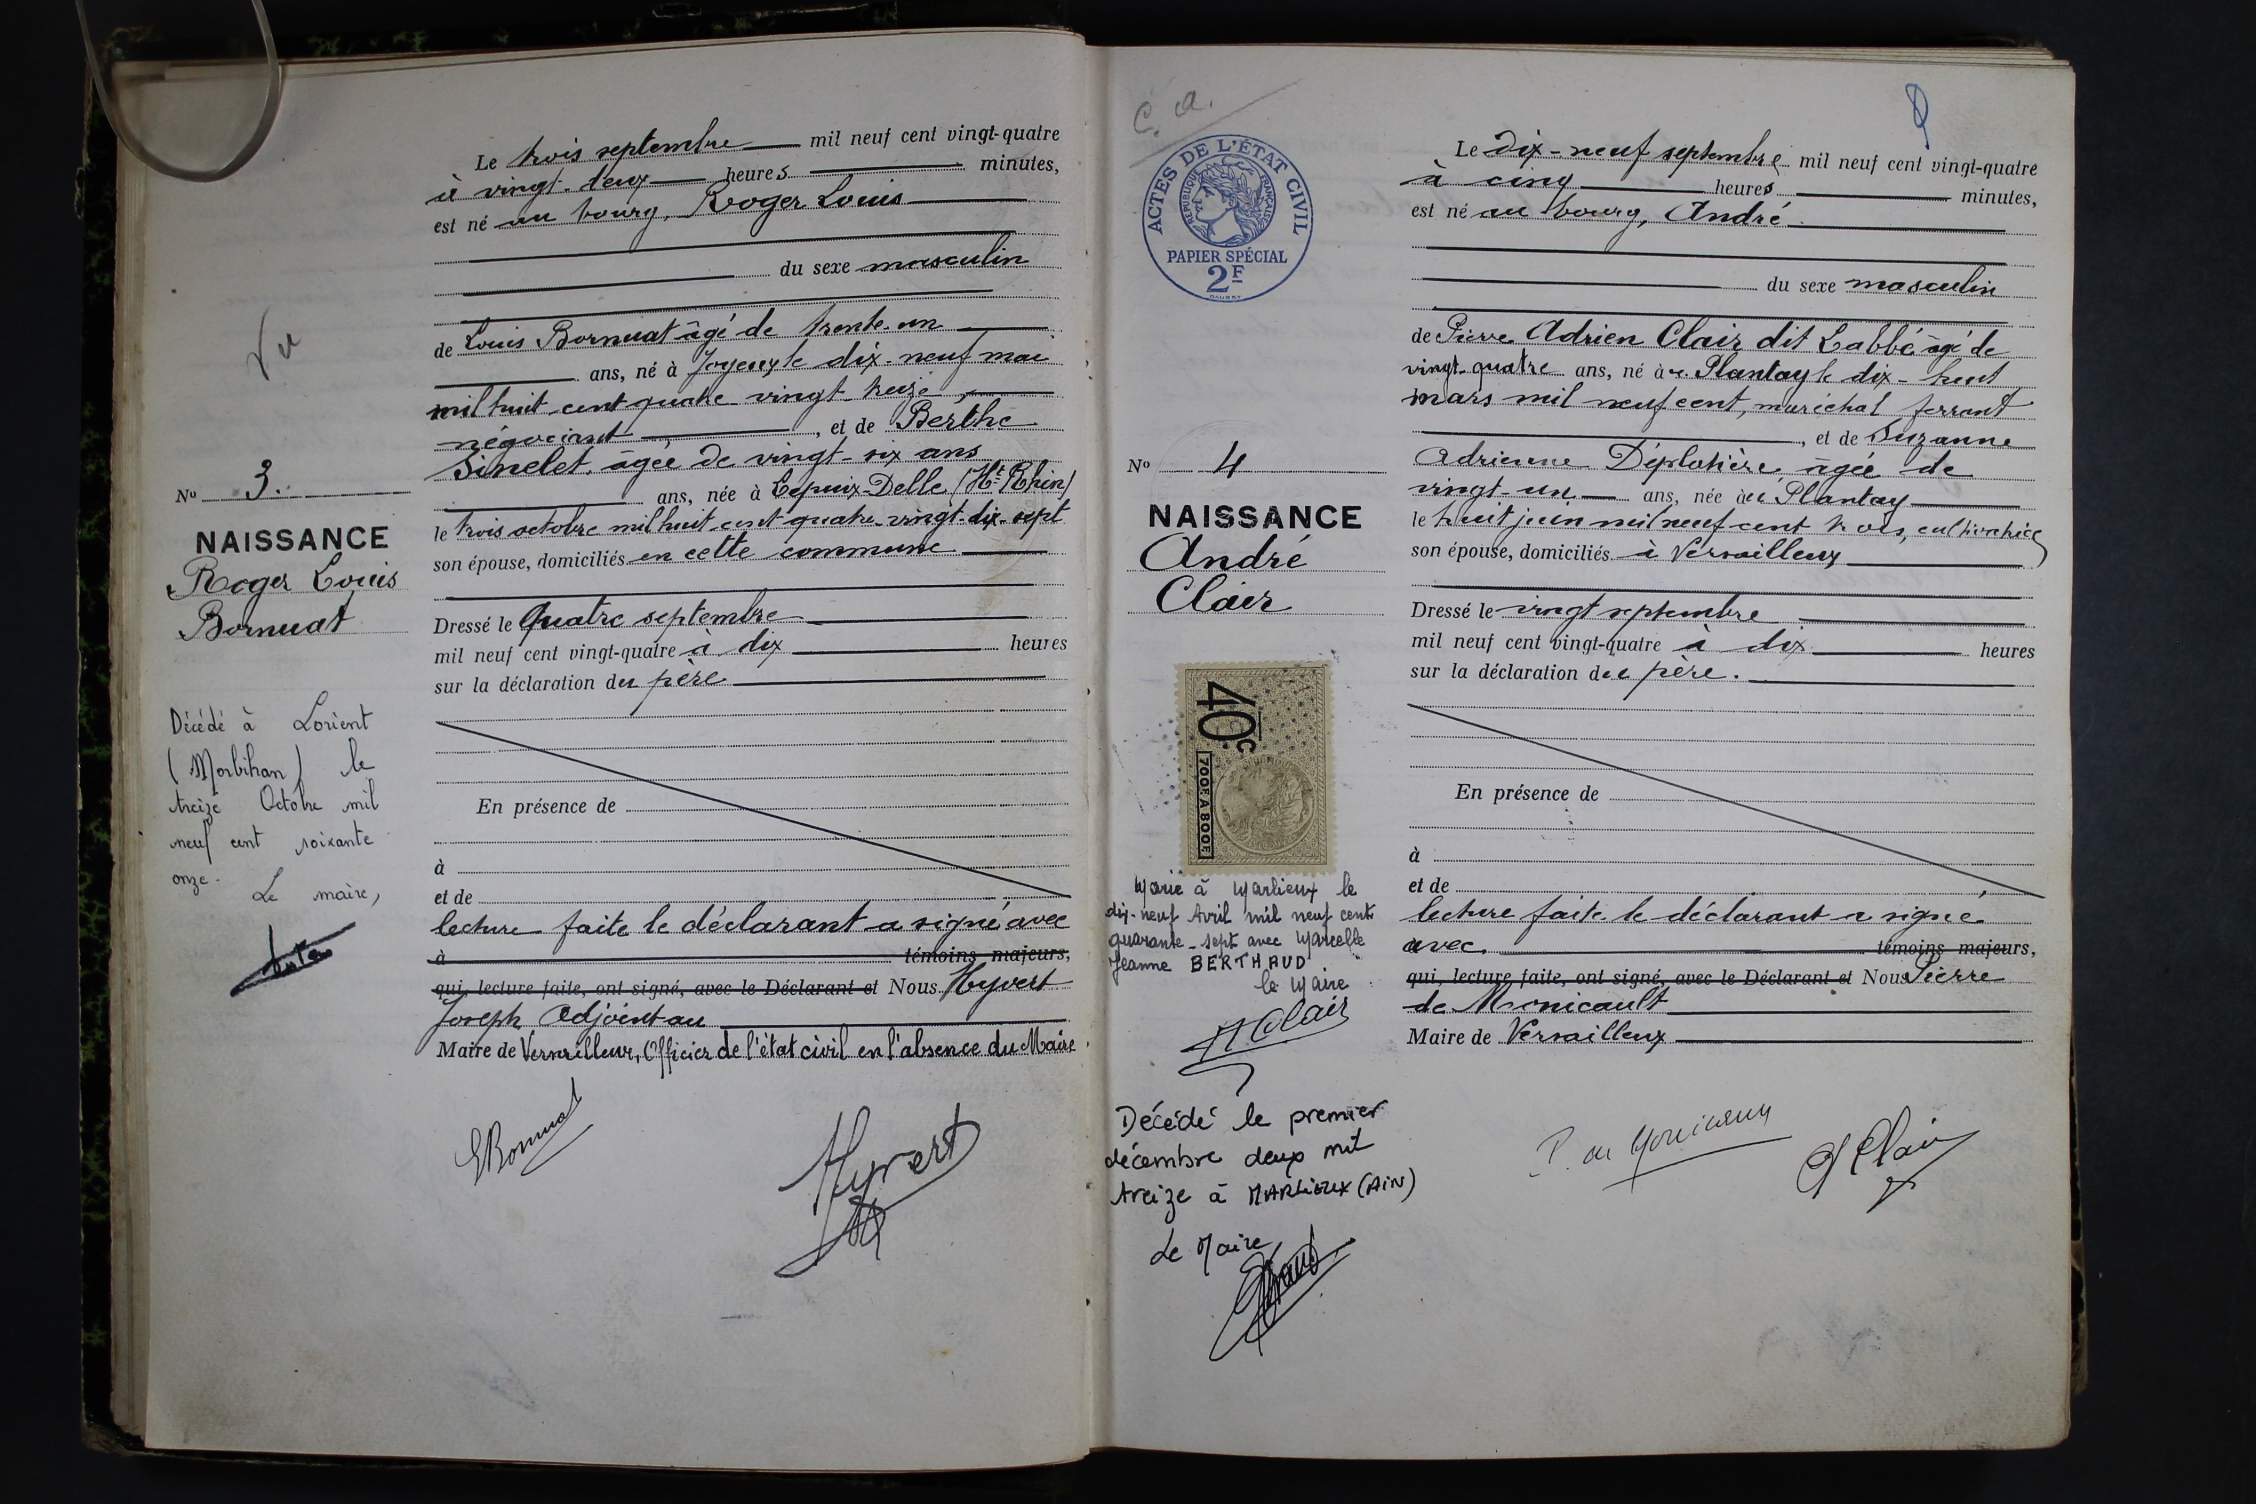 Vu
Nº 3.
NAISSANCE
Roger Louis
Bornuat
Décédé à Lorient
(Morbihan) le
treize Octobre mil
neuf cent soixante
onze.
Le maire,
Le trois septembre mil neuf cent vingt-quatre
à vingt-deux heures minutes,
est né au bourg, Roger Louis
du sexe masculin
de Louis Bornuat âgé de trente-un
ans, né à Joyeux le dix-neuf mai
mil huit cent quatre vingt treize,
négociant, et de Berthe
Sinelet, âgée de vingt-six ans
ans, née à Lepuix-Delle (Ht Rhin)
le trois octobre mil huit cent quatre-vingt-dix-sept
son épouse, domiciliés en cette commune
Dressé le quatre septembre
mil neuf cent vingt-quatre à dix heures
sur la déclaration du père
En présence de
à
et de
lecture faite le déclarant a signé avec
à témoins majeurs,
qui, lecture faite, ont signé, avec le Déclarant et Nous Hyvert
Joseph Adjoint au
Maire de Versailleux, Officier de l'état civil en l'absence du Maire
LBornuat
Hyvert
C. a.
ACTES DE L'ÉTAT CIVIL
RÉPUBLIQUE FRANÇAISE
PAPIER SPÉCIAL
2F
Nº 4
NAISSANCE
André
Clair
40c
700F. A 800F.
Marié à Marlieux le
dix-neuf Avril mil neuf cent
quarante-sept avec Marcelle
Jeanne BERTHAUD
le Maire
Clair
Décédé le premier
décembre deux mil
treize à MARLIEUX (AIN)
Le Maire
Le dix-neuf septembre mil neuf cent vingt-quatre
à cinq heures minutes,
est né au bourg, André
du sexe masculin
de Pierre Adrien Clair dit Labbé âgé de
vingt-quatre ans, né au Plantay le dix-huit
mars mil neuf cent, maréchal ferrant
, et de Suzanne
Adrienne Déplatière âgée de
vingt-un ans, née au Plantay
le huit juin mil neuf cent trois, cultivatrice
son épouse, domiciliés à Versailleux
Dressé le vingt septembre
mil neuf cent vingt-quatre à dix heures
sur la déclaration du père.
En présence de
à
et de
lecture faite le déclarant a signé
avec. témoins majeurs,
qui, lecture faite, ont signé, avec le Déclarant et Nous Pierre
de Monicault
Maire de Versailleux
P. de Monicault
Clair